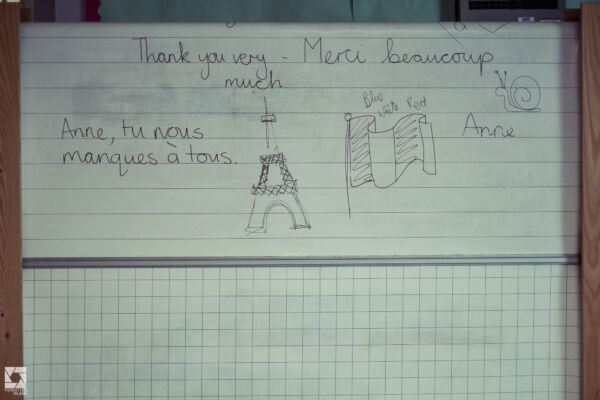 Thank you very - Merci beaucoup
much.
Blue white Red
Anne, tu nous
manques à tous.
Anne